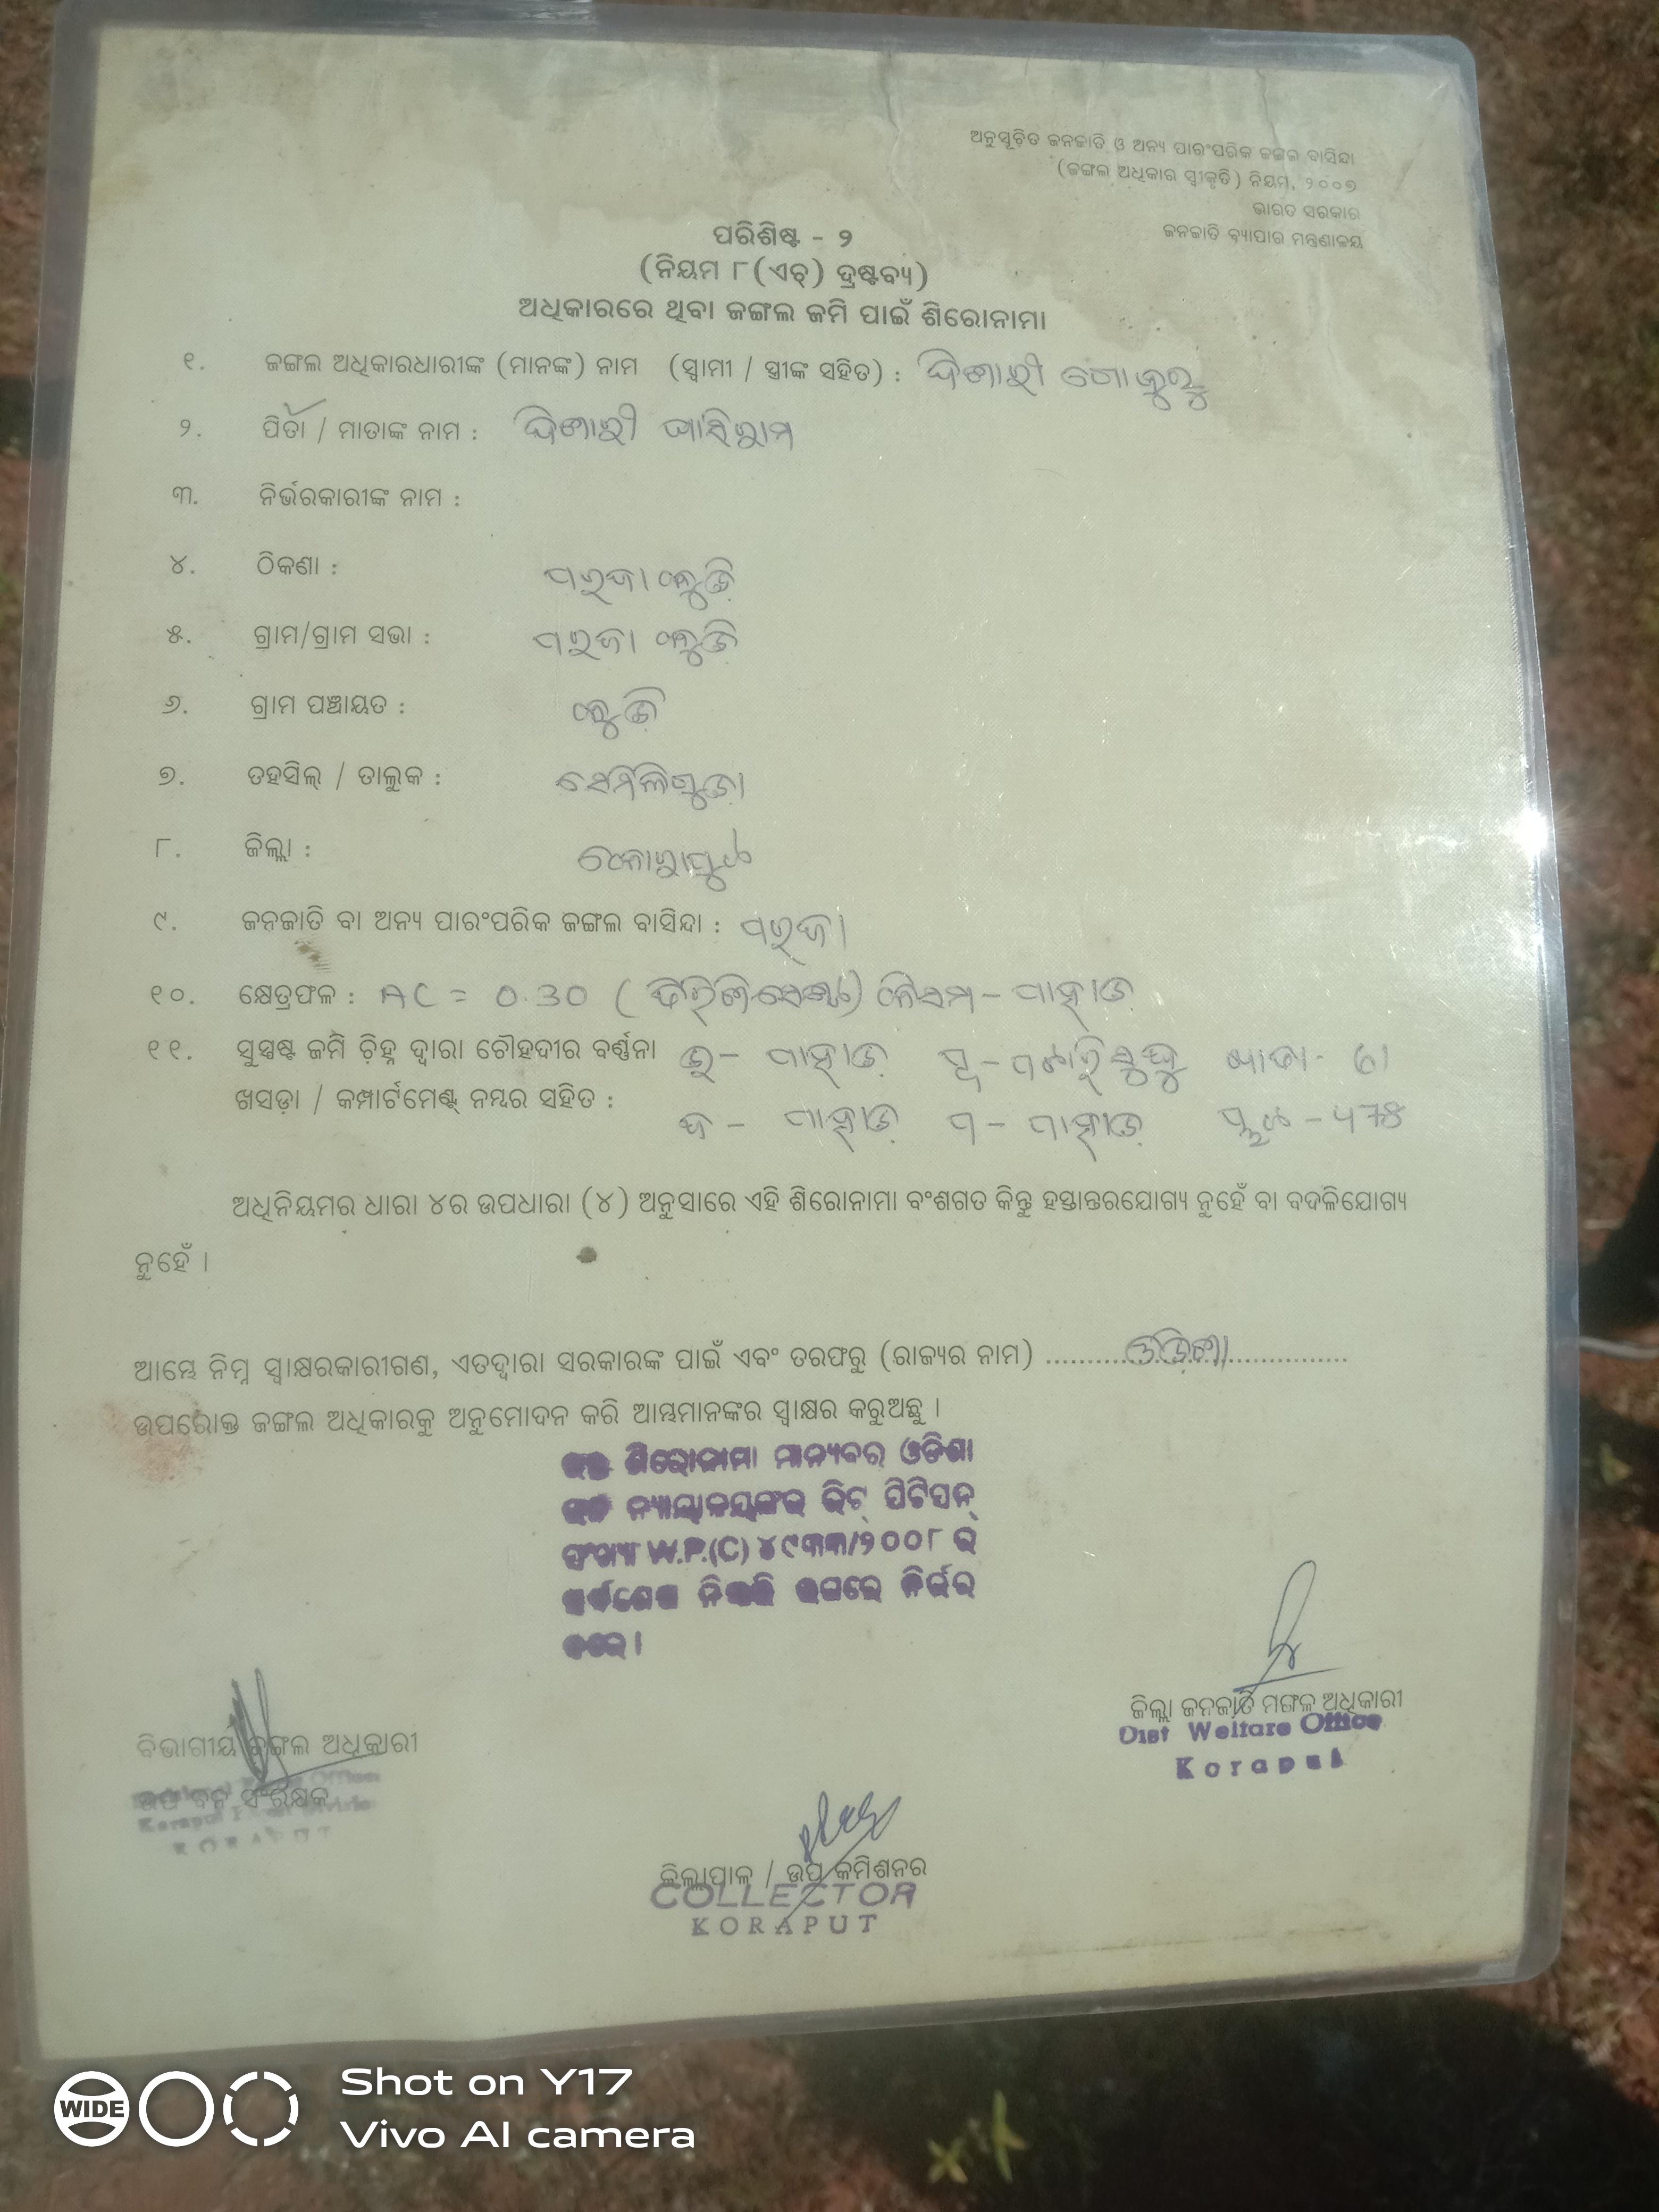 ଅନୁସୂଚିତ ଜନଜାତି ଓ ଅନ୍ୟ ପାରଂପରିକ ଜଙ୍ଗଲ ବାସିନ୍ଦା
(ଜଙ୍ଗଲ ଅଧିକାର ସ୍ୱୀକୃତି) ନିୟମ, ୨୦୦୭
ଭାରତ ସରକାର
ଜନଜାତି ବ୍ୟାପାର ମନ୍ତ୍ରଣାଳୟ
ପରିଶିଷ୍ଟ - ୨
(ନିୟମ ୮(ଏଚ୍) ଦ୍ରଷ୍ଟବ୍ୟ)
ଅଧିକାରରେ ଥିବା ଜଙ୍ଗଲ ଜମି ପାଇଁ ଶିରୋନାମା
୧. ଜଙ୍ଗଲ ଅଧିକାରଧାରୀଙ୍କ (ମାନଙ୍କ) ନାମ (ସ୍ୱାମୀ / ସ୍ତ୍ରୀଙ୍କ ସହିତ) :
୨. ପିତା / ମାତାଙ୍କ ନାମ :
୩. ନିର୍ଭରକାରୀଙ୍କ ନାମ :
୪. ଠିକଣା : ପରଜା
୫. ଗ୍ରାମ/ଗ୍ରାମ ସଭା : ପରଜା
୬. ଗ୍ରାମ ପଞ୍ଚାୟତ :
୭. ତହସିଲ୍ / ତାଲୁକ : ସେମିଳିଗୁଡା
୮. ଜିଲ୍ଲା : କୋରାପୁଟ
୯. ଜନଜାତି ବା ଅନ୍ୟ ପାରଂପରିକ ଜଙ୍ଗଲ ବାସିନ୍ଦା : ପରଜା
୧୦. କ୍ଷେତ୍ରଫଳ : AC = 0.30 ( କିସମ - ପାହାଡ
୧୧. ସୁସ୍ପଷ୍ଟ ଜମି ଚିହ୍ନ ଦ୍ୱାରା ଚୌହଦୀର ବର୍ଣ୍ଣନା ଉ - ପାହାଡ଼ ପୂ -
ଖସଡ଼ା / କମ୍ପାର୍ଟମେଣ୍ଟ୍ ନମ୍ବର ସହିତ : ଦ - ପାହାଡ଼ ପ - ପାହାଡ଼ ପ୍ଲଟ -
ଅଧିନିୟମର ଧାରା ୪ର ଉପଧାରା (୪) ଅନୁସାରେ ଏହି ଶିରୋନାମା ବଂଶଗତ କିନ୍ତୁ ହସ୍ତାନ୍ତରଯୋଗ୍ୟ ନୁହେଁ ବା ବଦଳିଯୋଗ୍ୟ
ନୁହେଁ ।
ଆମ୍ଭେ ନିମ୍ନ ସ୍ୱାକ୍ଷରକାରୀଗଣ, ଏତଦ୍ୱାରା ସରକାରଙ୍କ ପାଇଁ ଏବଂ ତରଫରୁ (ରାଜ୍ୟର ନାମ) ..........ଓଡ଼ିଶା..........
ଉପରୋକ୍ତ ଜଙ୍ଗଲ ଅଧିକାରକୁ ଅନୁମୋଦନ କରି ଆମ୍ଭମାନଙ୍କର ସ୍ୱାକ୍ଷର କରୁଅଛୁ ।
ଶିରୋନାମା ମାନ୍ୟବର ଓଡିଶା
ନ୍ୟାୟାଳୟଙ୍କର ରିଟ୍ ପିଟିସନ୍
ସଂଖ୍ୟା W.P.(C) ୪୯୩୩/୨୦୦୮ ର
ଉପରେ ନିର୍ଭର
କରେ ।
ଜିଲ୍ଲା ଜନଜାତି ମଙ୍ଗଳ ଅଧିକାରୀ
Dist Welfare Office
Koraput
ବିଭାଗୀୟ ଜଙ୍ଗଲ ଅଧିକାରୀ
ଉପ ବନ ସଂରକ୍ଷକ
KORAPUT
ଜିଲ୍ଲାପାଳ / ଉପ କମିଶନର
COLLECTOR
KORAPUT
WIDE
Shot on Y17
Vivo AI camera